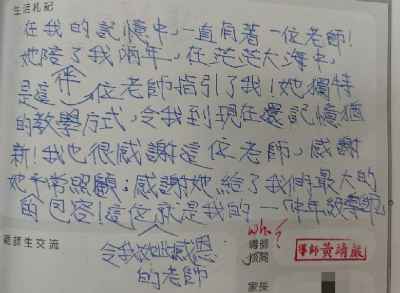 生活札記
在我的記憶中，一直有著一位老師！
她陪了我兩年，在茫茫大海中，
是這樣一位老師指引了我！她獨特
的教學方式，令我到現在還記憶猶
新！我也很感謝這位老師，感謝
她平常照顧；感謝她給了我們最大的
的包容！這位就是我的
令我
感恩
的老師
親師生交流
who?
導師
導師黃靖嚴
家長